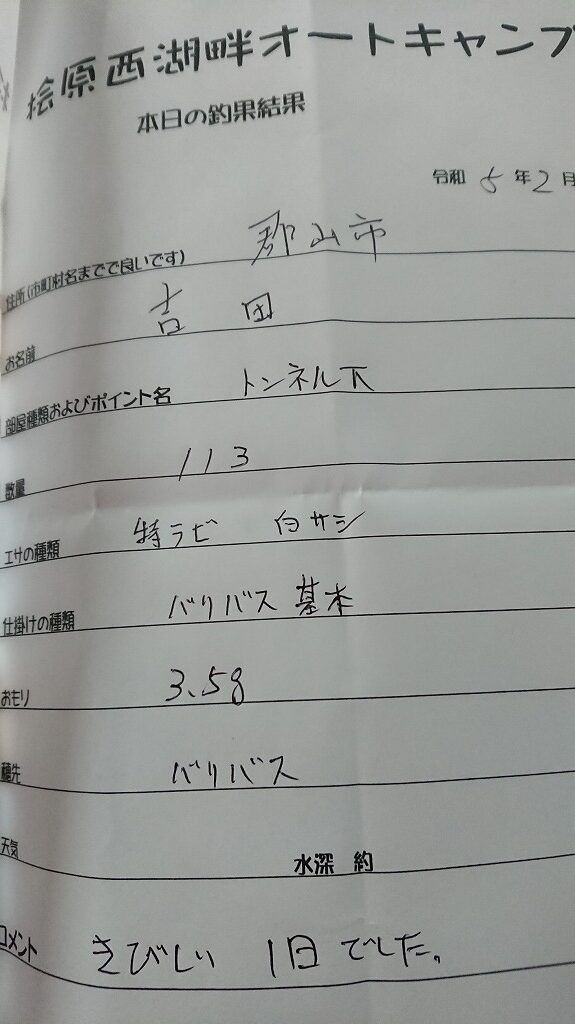 桧原西湖畔オートキャンプ
本日の釣果結果
令和 5 年 2 月
住所(市町村名までで良いです) 郡山市
お名前 吉田
部屋種類およびポイント名 トンネル下
数量 113
エサの種類 特ラビ 白サシ
仕掛けの種類 バリバス 基本
おモリ 3.5g
穂先 バリバス
天気 水深 約
コメント きびしい 1日でした。